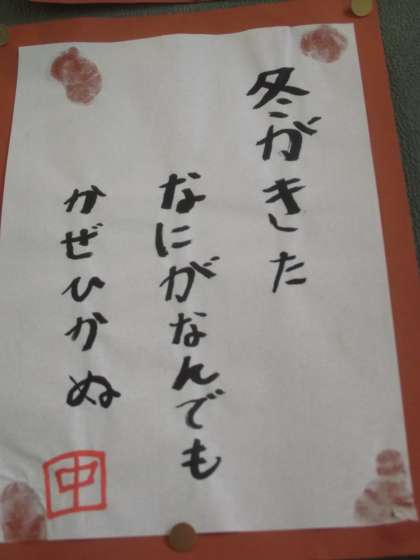 冬がきた
なにがなんでも
かぜひかぬ
中